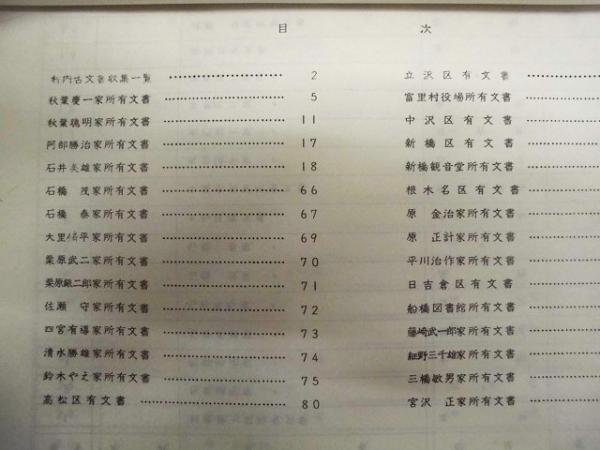 目次
村内古文書収集一覧 2
秋葉慶一家所有文書 5
秋葉聰明家所有文書 11
阿部勝治家所有文書 17
石井英雄家所有文書 18
石橋 茂家所有文書 66
石橋 泰家所有文書 67
大里 平家所有文書 69
栗原武二家所有文書 70
栗原銀二郎家所有文書 71
佐瀬 守家所有文書 72
四宮有導家所有文書 73
清水勝雄家所有文書 74
鈴木やえ家所有文書 75
高松区有文書 80
立沢区有文書
富里村役場所有文書
中沢区有文書
新橋区有文書
新橋観音堂所有文書
根木名区有文書
原 金治家所有文書
原 正計家所有文書
平川治作家所有文書
日吉倉区有文書
船橋図書館所有文書
藤崎武一郎家所有文書
細野三千雄家所有文書
三橋敏男家所有文書
宮沢 正家所有文書